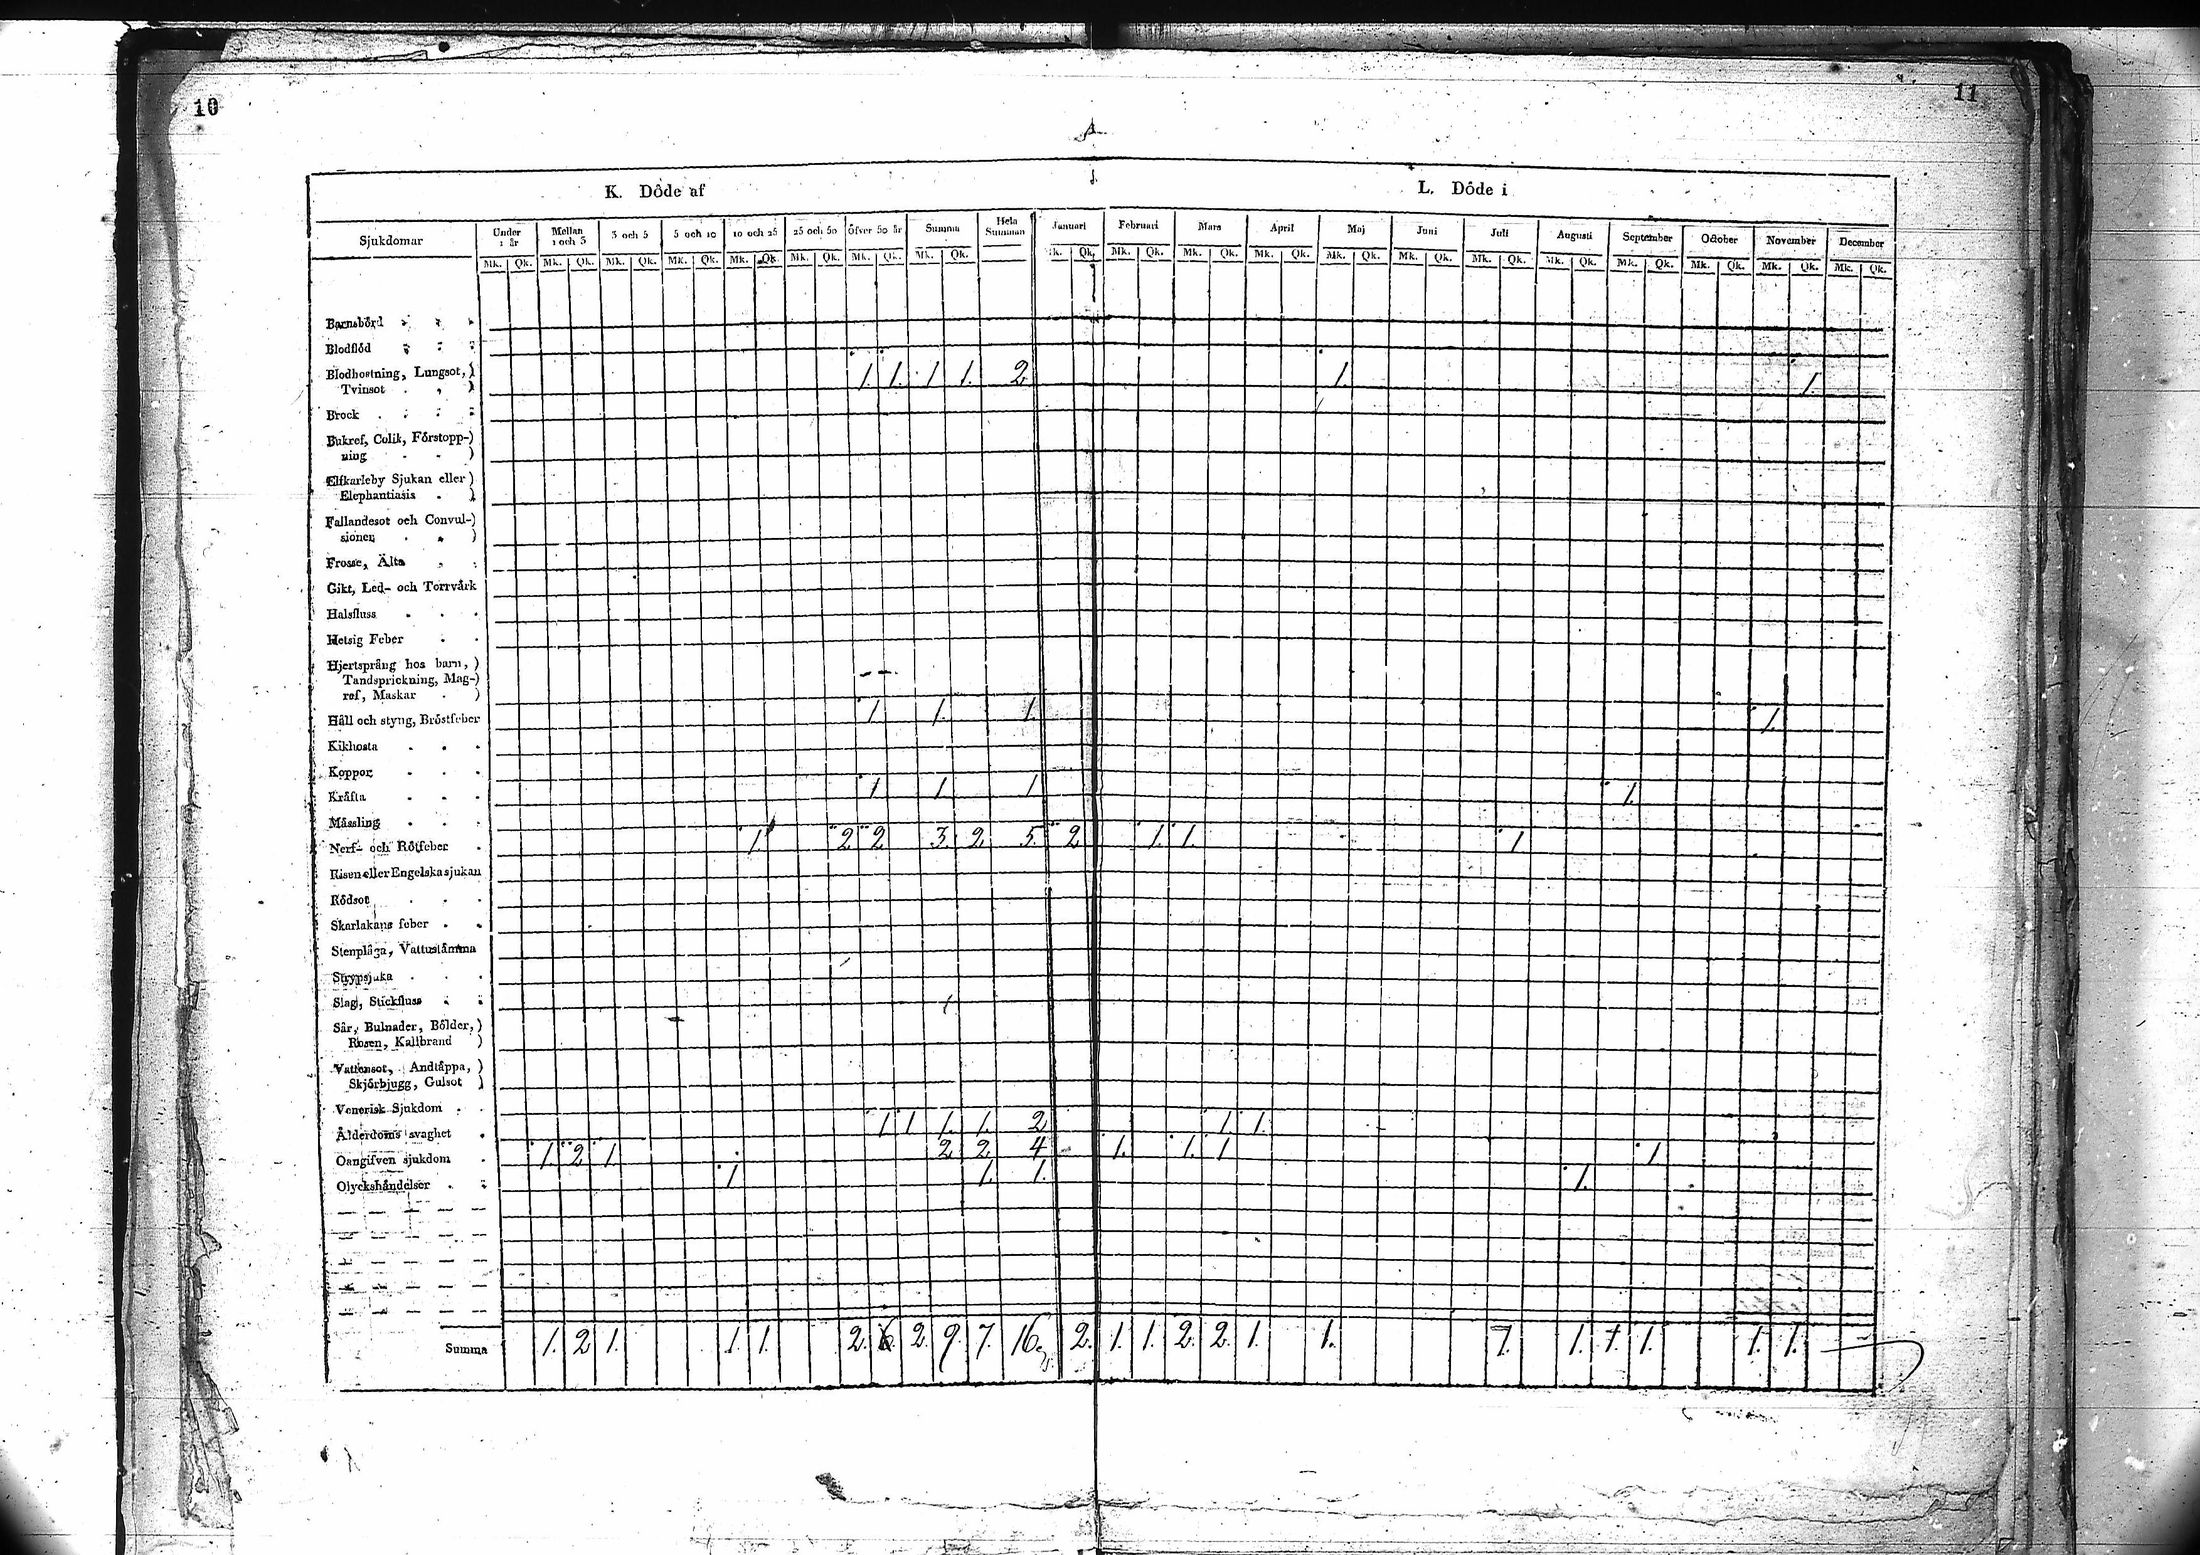 10
11
K. Döde af
L. Döde i
Sjukdomar
Under 1 år
Mellan 1 och 3
3 och 5
5 och 10
10 och 25
25 och 50
Öfver 50 år
Summa
Hela Summan
Januari
Februari
Mars
April
Maj
Juni
Juli
Augusti
September
October
November
December
Mk. Qk. Mk. Qk. Mk. Qk. Mk. Qk. Mk. Qk. Mk. Qk. Mk. Qk. Mk. Qk.
Mk. Qk. Mk. Qk. Mk. Qk. Mk. Qk. Mk. Qk. Mk. Qk. Mk. Qk. Mk. Qk. Mk. Qk. Mk. Qk. Mk. Qk. Mk. Qk.
Barnsbörd
Blodflöd
Blodhostning, Lungsot,
Tvinsot 1. 1. 1 1. 2 1. 1.
Brock
Bukref, Colik, Förstopp-
ning
Elfkarleby Sjukan eller
Elephantiasis
Fallandesot och Convul-
sioner
Frosse, Älta
Gikt, Led- och Torrvärk
Halsfluss
Hetsig Feber
Hjertsprång hos barn,
Tandsprickning, Mag-
ref, Maskar
Håll och styng, Bröstfeber 1 1. 1. 1.
Kikhosta
Koppor
Kräfta 1 1. 1 1.
Mässling
Nerf- och Rötfeber 1. 2 2 3. 2. 5. 2 1. 1. 1.
Risen eller Engelska sjukan
Rödsot
Skarlakans feber
Stenplåga, Vattustämma
Strypsjuka
Slag, Stickfluss
Sår, Bulnader, Bölder,
Rosen, Kallbrand
Vattensot, Andtäppa,
Skjörbjugg, Gulsot
Venerisk Sjukdom
Ålderdoms svaghet 1 1 1. 1. 2 1. 1.
Oangifven sjukdom 1. 2 1 2. 2. 4 1. 1. 1 1.
Olyckshändelser 1 1. 1. 1.
Summa 1. 2 1. 1. 1. 2. 6. 2. 9. 7. 16 2. 1. 1. 2. 2. 1. 1. 1. 1. 1. 1. 1. 1.